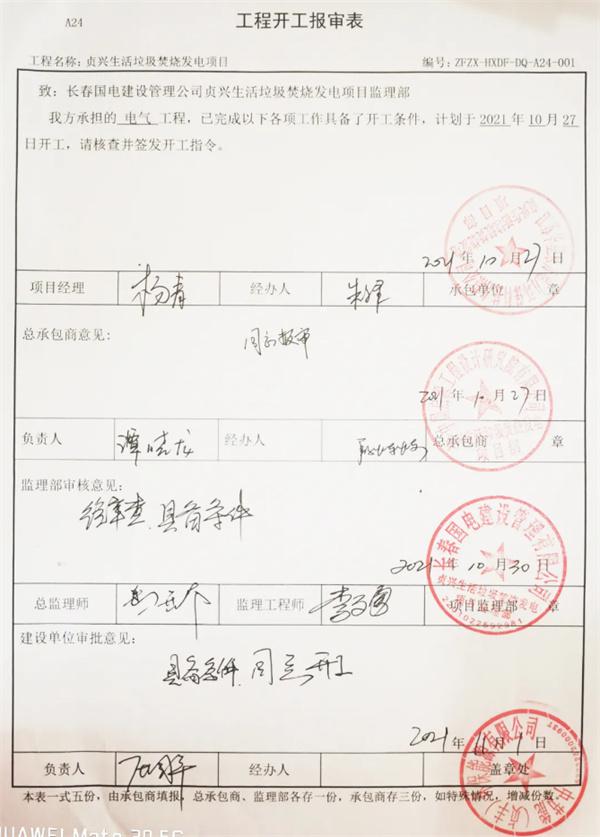 A24
工程开工报审表
工程名称: 贞兴生活垃圾焚烧发电项目 编号: ZFZX-HXDF-DQ-A24-001
致: 长春国电建设管理公司贞兴生活垃圾焚烧发电项目监理部
我方承担的 电气 工程, 已完成以下各项工作具备了开工条件, 计划于 2021 年 10 月 27
日开工, 请核查并签发开工指令。
2021 年 10 月 27 日
项目经理 杨青 经办人 承包单位 章
总承包商意见:
同意报审
2021 年 10 月 27 日
负责人 谭晓龙 经办人 总承包商 章
监理部审核意见:
经审查,具备条件
2021 年 10 月 30 日
总监理师 监理工程师 项目监理部 章
长春国电建设管理有限公司
贞兴生活垃圾焚烧发电
建设单位审批意见:
具备条件,同意开工
2021 年 11 月 1 日
负责人 经办人 盖章处
本表一式五份, 由承包商填报, 总承包商、监理部各存一份, 承包商存三份, 如特殊情况, 增减份数。
HUAWEI Mate 30 5G